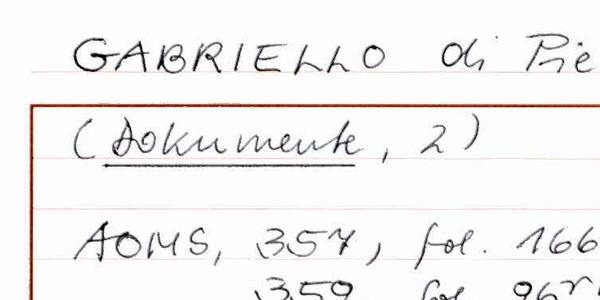 GABRIELLO di Pie
(Dokumente, 2)
AOMS, 357, fol. 166
359 fol 96v